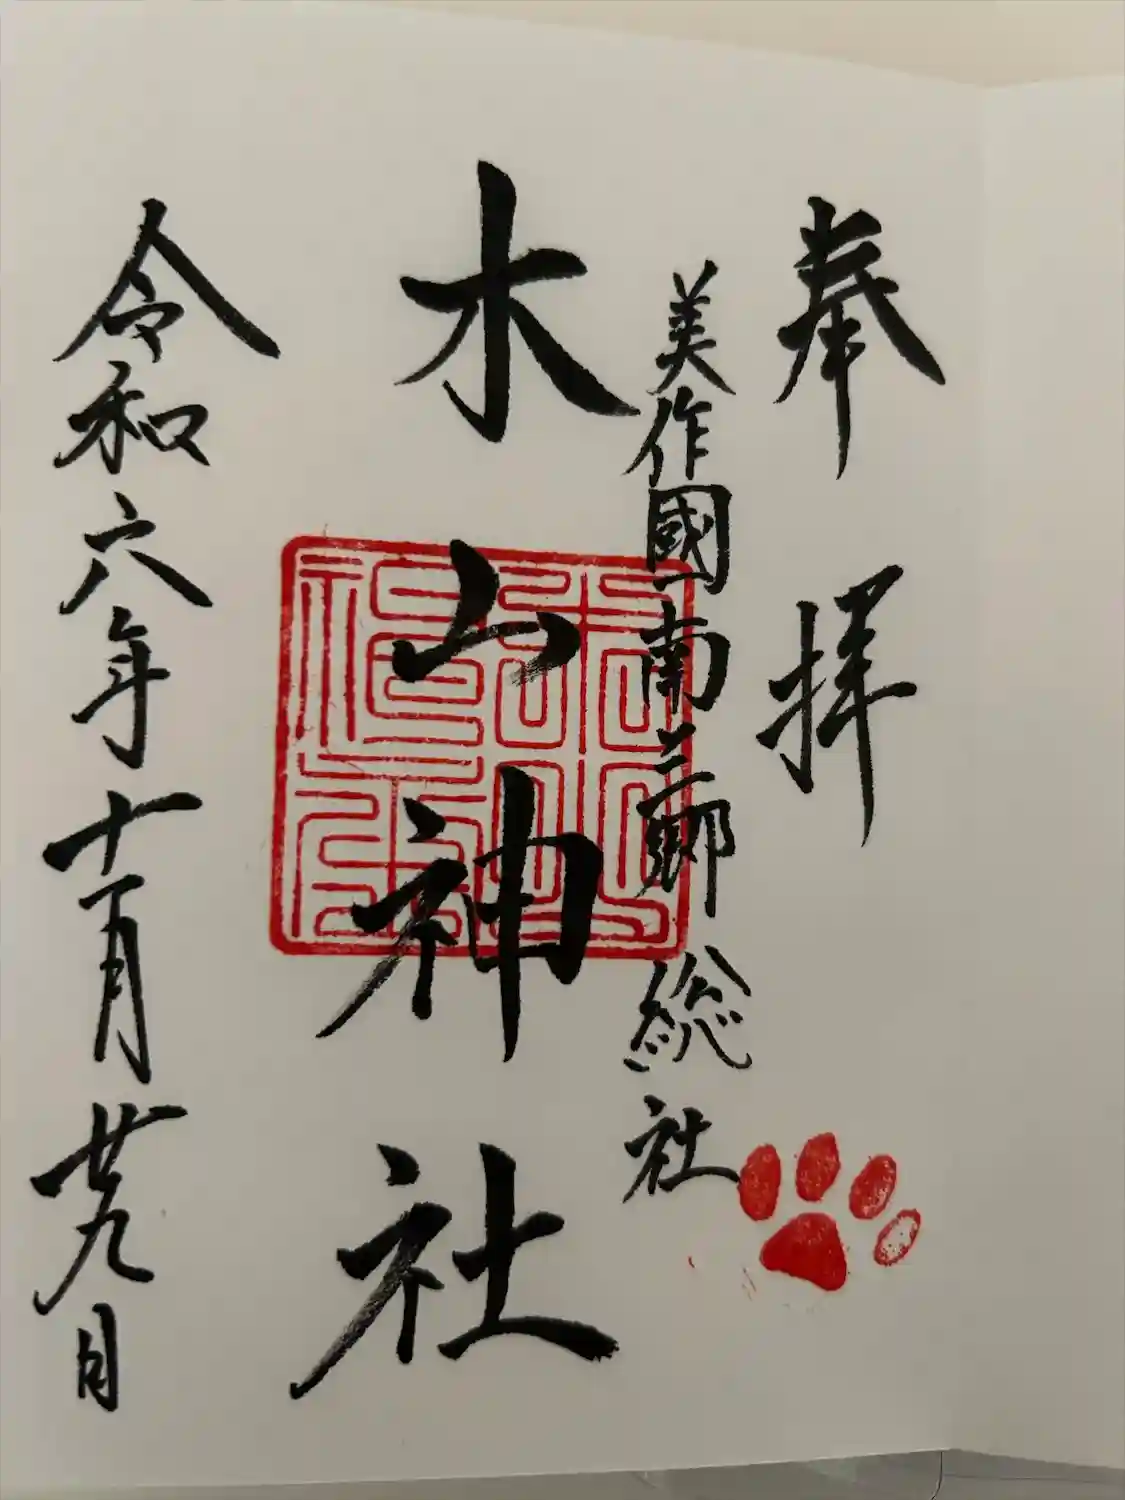 奉拝
美作國南三郷総社
木山神社
令和六年十一月廿九日